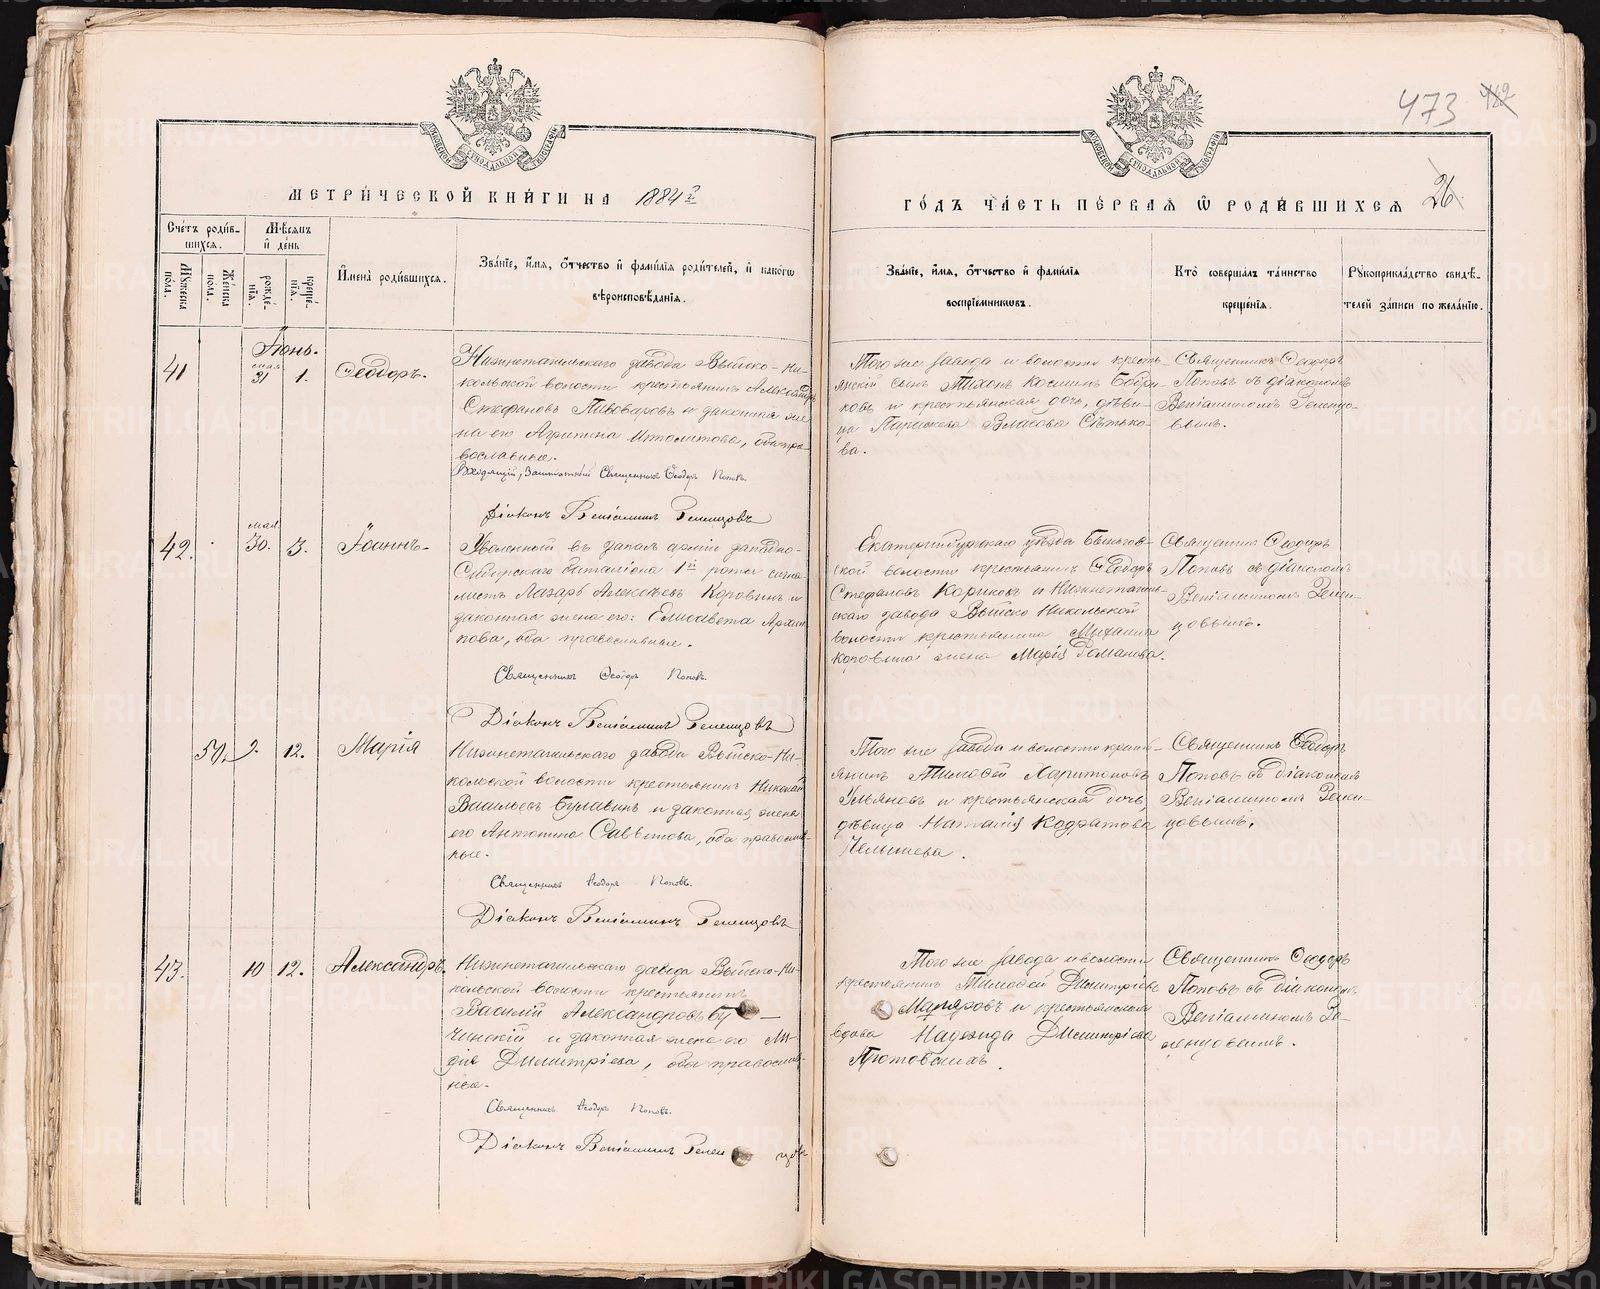 473
МЕТРИ́ЧЕСКОЙ КНИ́ГИ НА 1884 г.
ГО́ДЪ ЧА́СТЬ ПЕ́РВАЯ Ѡ РОДИ́ВШИХСЯ
26
Сче́тъ роди́в-
шихся.
Мѣ́сяцъ
и̂ де́нь
Му́жеска по́ла.
Же́нска пола.
рожде́-
нія.
креще́-
нія.
И̂мена̀ роди́вшихся.
Зва́ніе, и̂мя, ѻ̂тчество и̂ фами́лія роди́телей, и̂ како́гѡ
вѣроисповѣ́данія.
Зва́ніе, и̂мя, ѻ̂тчество и̂ фами́лія
воспріе́мниковъ.
Кто̀ соверша́лъ та́инство
креще́нія.
Рꙋкоприкла́дство свидѣ́-
телей за́писи по жела́нію.
Іюнь.
41
мая
31
1.
Ѳеодоръ.
Нижнетагильскаго завода Выйско-Ни-
кольской волости крестьянинъ Александръ
Стефановъ Пивоваровъ и законная же-
на его Агрипина Ипполитова, оба пра-
вославные.
Священникъ Ѳеодоръ Поповъ.
Діаконъ Веніаминъ
Того же завода и волости кресть-
янскій сынъ Тихонъ Косминъ Бобри-
ковъ и крестьянская дочь, дѣви-
ца Параскева Власова Сѣтько-
ва.
Священникъ Ѳеодоръ
Поповъ съ діакономъ
Веніаминомъ
42.
мая
30.
3.
Іоаннъ.
Уволенный въ запасъ арміи западно-
Сибирскаго баталіона 1й роты сигна-
листъ Лазарь Алексѣевъ Коровинъ и
законная жена его: Елисавета Архи-
пова, оба православные.
Священникъ Ѳеодоръ Поповъ.
Діаконъ Веніаминъ
Екатеринбургскаго уѣзда
ской волости крестьянинъ Ѳеодоръ
Стефановъ Кориковъ и Нижнетагиль-
скаго завода Выйско Никольской
волости крестьянина Михаила
Коровина жена Марія Романова.
Священникъ Ѳеодоръ
Поповъ съ діакономъ
Веніаминомъ
51.
9.
12.
Марія
Нижнетагильскаго завода Выйско-Ни-
кольской волости крестьянинъ Николай
Васильевъ Булавинъ и законная жена
его Антонина Савватова, оба православ-
ные.
Священникъ Ѳеодоръ Поповъ.
Діаконъ Веніаминъ
Того же завода и волости кресть-
янинъ Тимоѳей Харитоновъ
Ульяновъ и крестьянская дочь
дѣвица Наталія Кодратова
Челышева.
Священникъ Ѳеодоръ
Поповъ съ діакономъ
Веніаминомъ
43.
10
12.
Александръ.
Нижнетагильскаго завода Выйско-Ни-
кольской волости крестьянинъ
Василій Александровъ Бу-
чинскій и законная жена его Ли-
дія Димитріева, оба православ-
ные.
Священникъ Ѳеодоръ Поповъ.
Діаконъ Веніаминъ
Того же завода и волости
крестьянинъ Тимоѳей Димитріевъ
Маляровъ и крестьянская
вдова Надежда Димитріева
Священникъ Ѳеодоръ
Поповъ съ діаконом
Веніаминомъ
METRIKI.GASO-URAL.RU